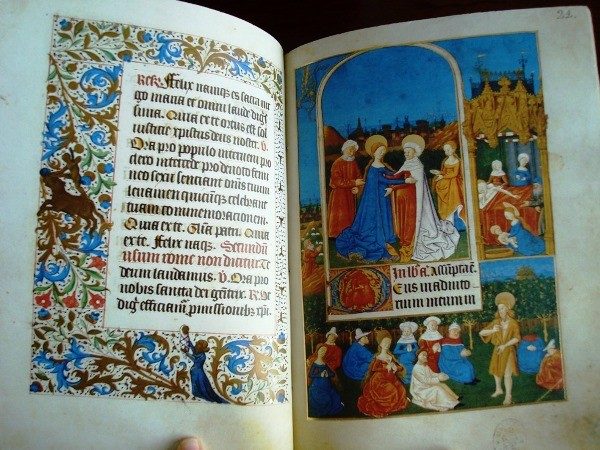 Felix namqȝ es sacra uir
go maria et omni laude dig
sima. Quia ex te ortus est sol
iusticie xpistus deus noster. V.
Ora pro populo interueni pro
clero intercede pro deuoto femi
neo sexu senciant om̄s tuum
leuamen quicūqȝ celebrant
tuam commemoracionem.
Quia ex te. Gl͞a patri. Quia
ex te. Felix naqȝ. Secundū
usum rome non dicitur Te
deum laudamus. V. Ora pro
nobis sancta dei genitrix. R. Vt
digni efficiam̄ promissionibus xpi.
21.
Eus in adiuto
rium meum in